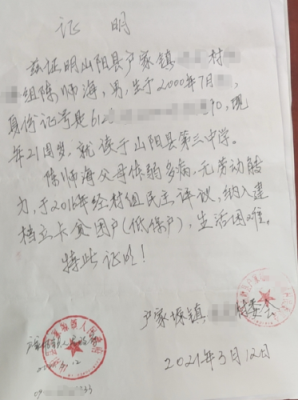 证 明
兹证明山阳县户家镇 村
组陈师海,男,生于2000年7月
身份证号是612 90,现
年21周岁,就读于山阳县第三中学。
陈师海父母体弱多病,无劳动能
力,于2016年经村组民主评议,纳入建
档立卡贫困户(低保户),生活困难。
特此证明!
户家塬镇 村委会
2021年3月12日